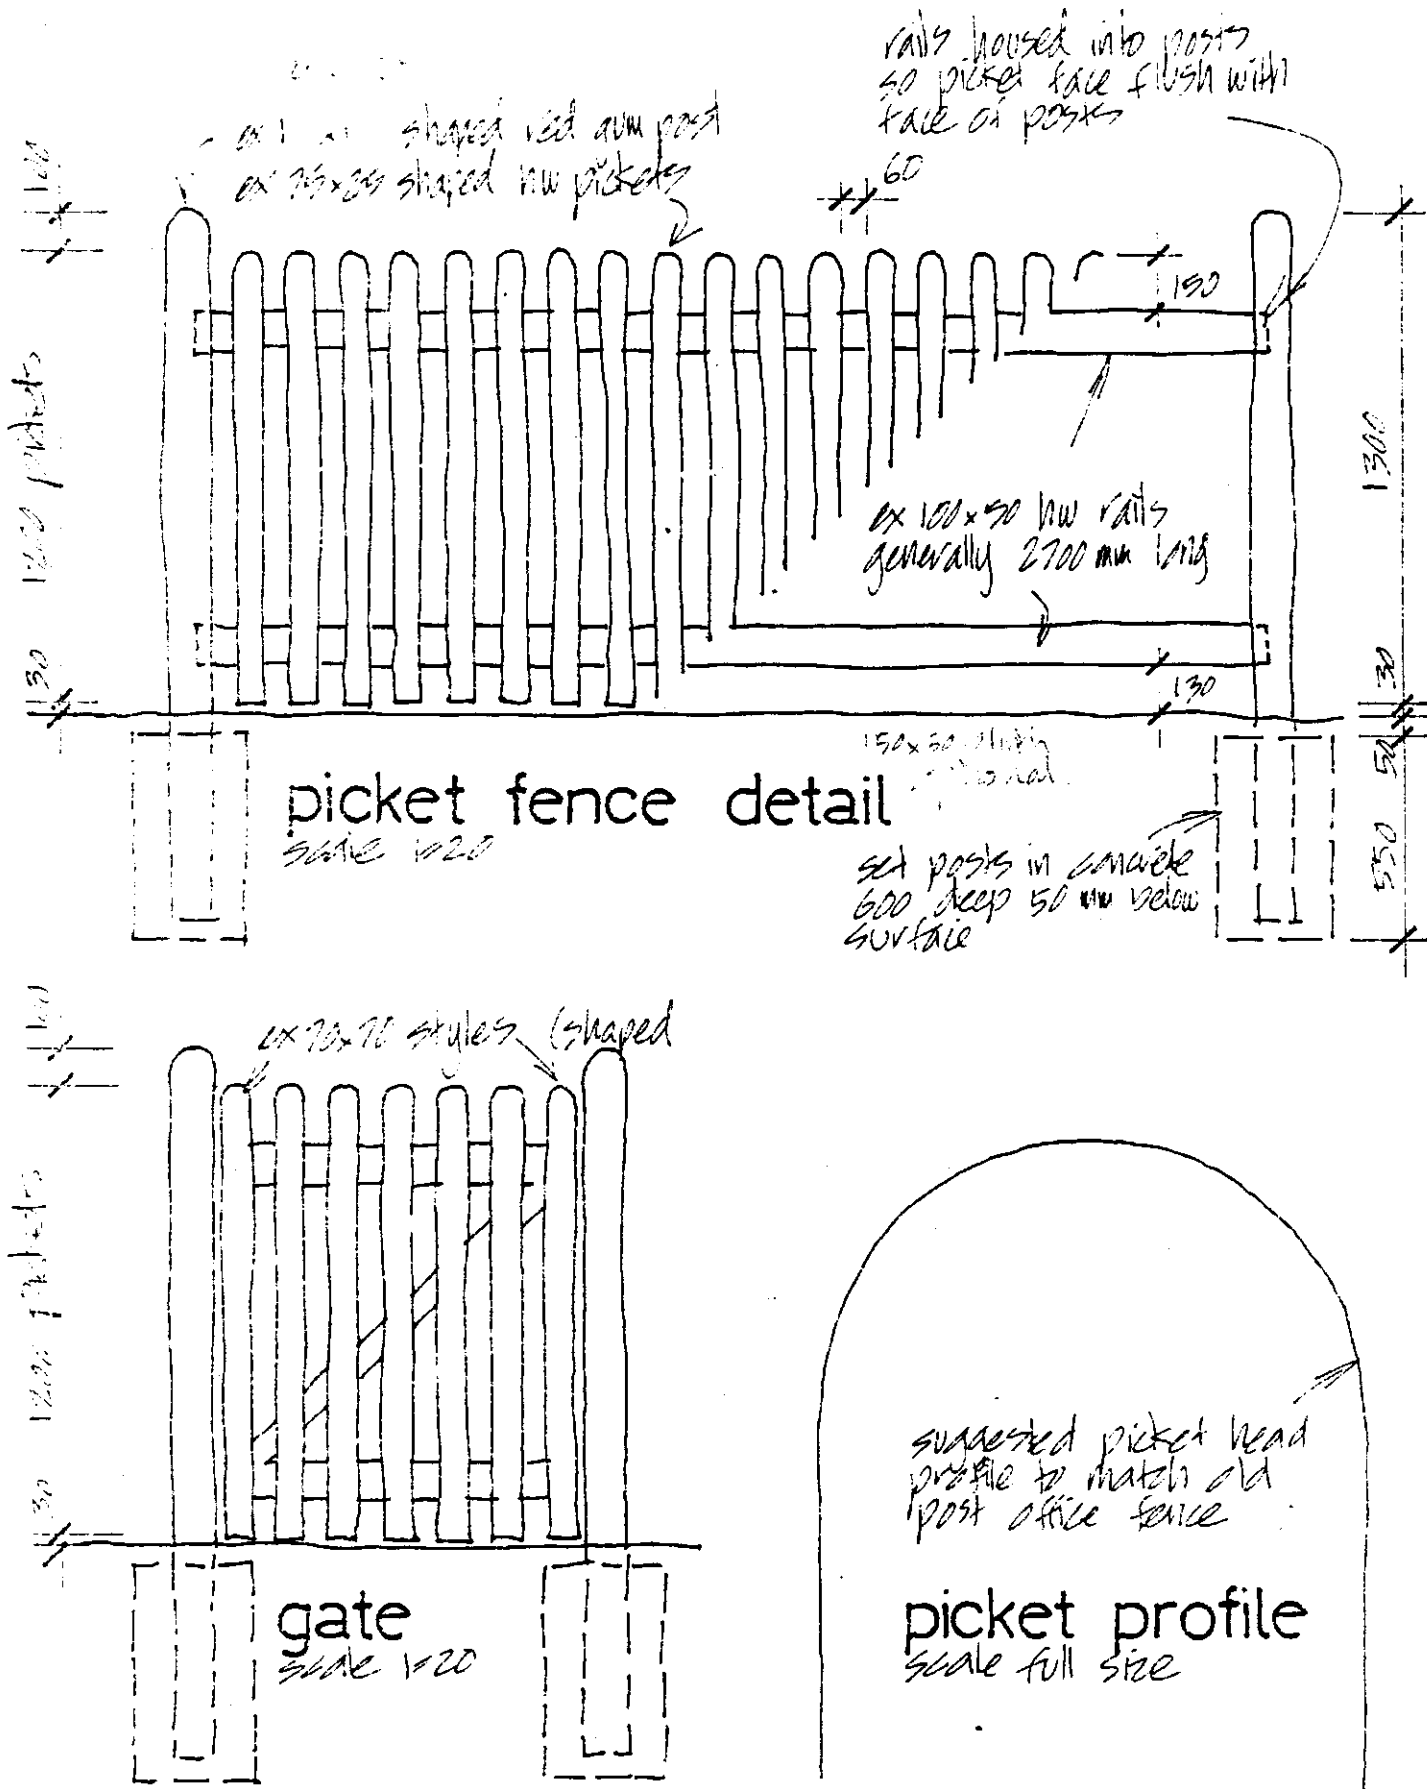 rails housed into posts
so picket face flush with
face of posts
shaped red gum post
ex 75x25 shaped hw pickets
60
100
150
1300
pickets
ex 100x50 hw rails
generally 2700 mm long
30
130
30
50
550
picket fence detail
scale 1:20
set posts in concrete
600 deep 50 mm below
surface
100
ex 70x70 styles (shaped
pickets
30
suggested picket head
profile to match old
post office fence
gate
scale 1:20
picket profile
scale full size